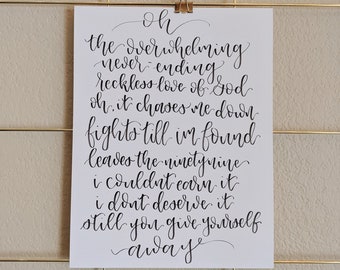 oh
the overwhelming
never-ending
reckless love of God
oh, it chases me down
fights till im found
leaves the ninetynine
i couldnt earn it
i dont deserve it
still you give yourself
away